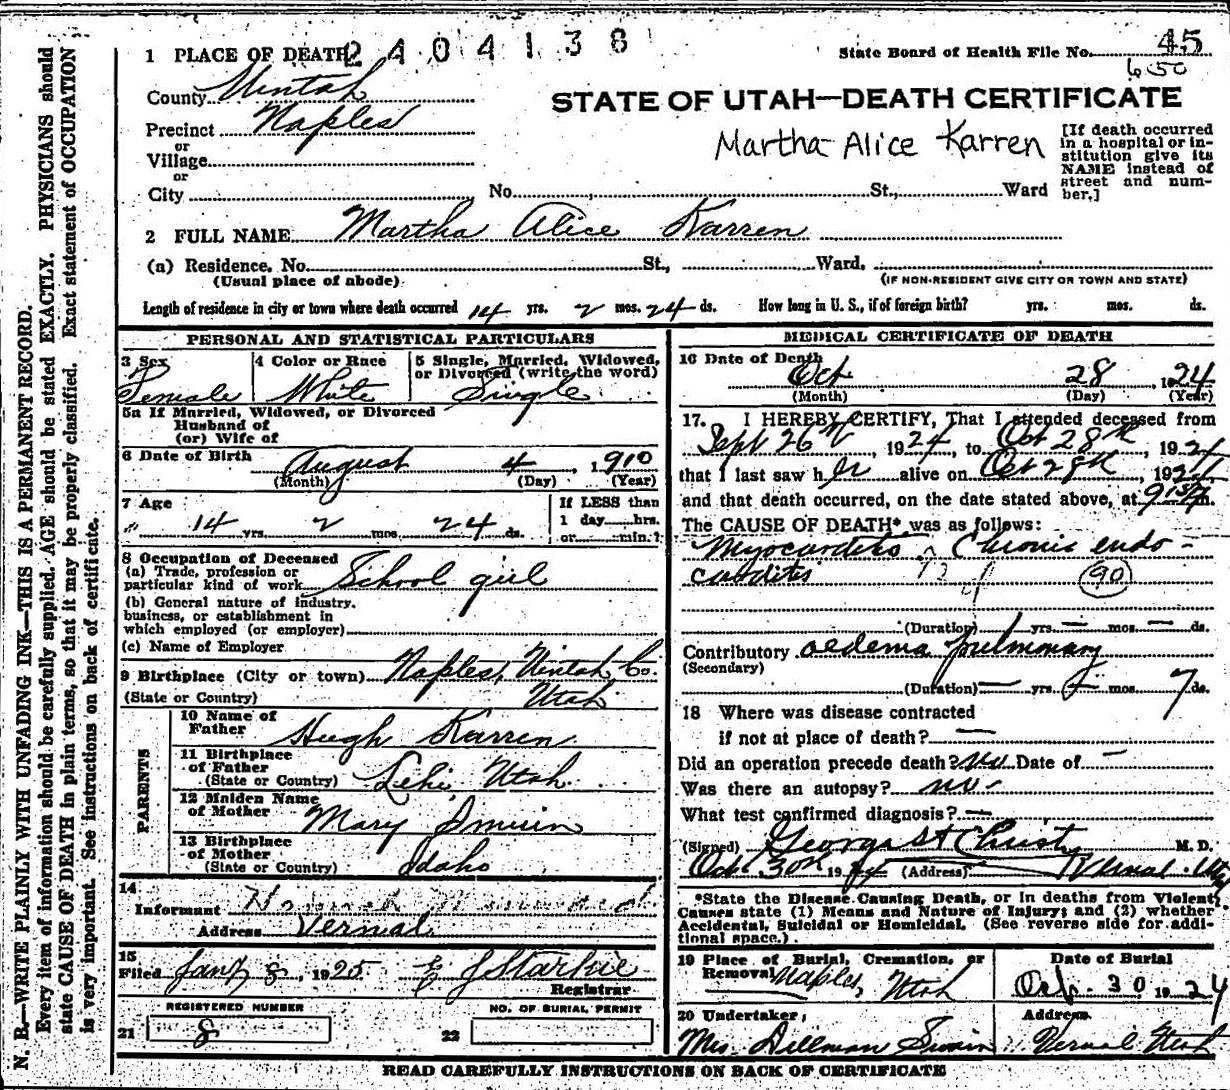 N. B.—WRITE PLAINLY WITH UNFADING INK—THIS IS A PERMANENT RECORD.
Every item of information should be carefully supplied. AGE should be stated EXACTLY. PHYSICIANS should
state CAUSE OF DEATH in plain terms, so that it may be properly classified. Exact statement of OCCUPATION
is very important. See instructions on back of certificate.
1 PLACE OF DEATH 2404138
State Board of Health File No. 45
650
County Uintah
STATE OF UTAH—DEATH CERTIFICATE
Precinct Naples
or
Village
or
City No. St., Ward
Martha Alice Karren
[If death occurred
in a hospital or in-
stitution give its
NAME instead of
street and num-
ber.]
2 FULL NAME Martha Alice Karren
(a) Residence, No. St., Ward,
(Usual place of abode) (IF NON-RESIDENT GIVE CITY OR TOWN AND STATE)
Length of residence in city or town where death occurred 14 yrs. 2 mos. 24 ds. How long in U. S., if of foreign birth? yrs. mos. ds.
PERSONAL AND STATISTICAL PARTICULARS
3 Sex 4 Color or Race 5 Single, Married, Widowed,
or Divorced (write the word)
Female White Single
5a If Married, Widowed, or Divorced
Husband of
(or) Wife of
6 Date of Birth August 4, 1910
(Month) (Day) (Year)
7 Age
14 yrs. 2 mos. 24 ds.
If LESS than
1 day hrs.
or min.?
8 Occupation of Deceased
(a) Trade, profession or
particular kind of work School girl
(b) General nature of industry,
business, or establishment in
which employed (or employer)
(c) Name of Employer
9 Birthplace (City or town) Naples, Uintah Co.
(State or Country) Utah
PARENTS
10 Name of
Father Hugh Karren
11 Birthplace
of Father
(State or Country) Lehi, Utah
12 Maiden Name
of Mother Mary
13 Birthplace
of Mother
(State or Country) Idaho
14
Informant
Address Vernal
15
Filed Jany 8, 1925. E J Starkie
Registrar
REGISTERED NUMBER NO. OF BURIAL PERMIT
21 8 22
MEDICAL CERTIFICATE OF DEATH
16 Date of Death
Oct 28, 1924
(Month) (Day) (Year)
17. I HEREBY CERTIFY, That I attended deceased from
Sept 26, 1924, to Oct 28th, 1924
that I last saw her alive on Oct 28th, 1924
and that death occurred, on the date stated above, at 915 m.
The CAUSE OF DEATH* was as follows:
Myocarditis Chronic endo-
carditis 90
(Duration) 1 yrs. — mos. — ds.
Contributory oedema pulmonary
(Secondary)
(Duration) — yrs. mos. 7 ds.
18 Where was disease contracted
if not at place of death? —
Did an operation precede death? no Date of —
Was there an autopsy? no-
What test confirmed diagnosis? —
(Signed) George St Christ M. D.
Oct 30th 19 (Address) Vernal, Utah
*State the Disease Causing Death, or in deaths from Violent
Causes state (1) Means and Nature of Injury; and (2) whether
Accidental, Suicidal or Homicidal. (See reverse side for addi-
tional space.)
19 Place of Burial, Cremation, or
Removal Naples, Utah
Date of Burial
Oct. 30 1924
20 Undertaker, Address
Mrs. Dillman Swain Vernal Utah
READ CAREFULLY INSTRUCTIONS ON BACK OF CERTIFICATE